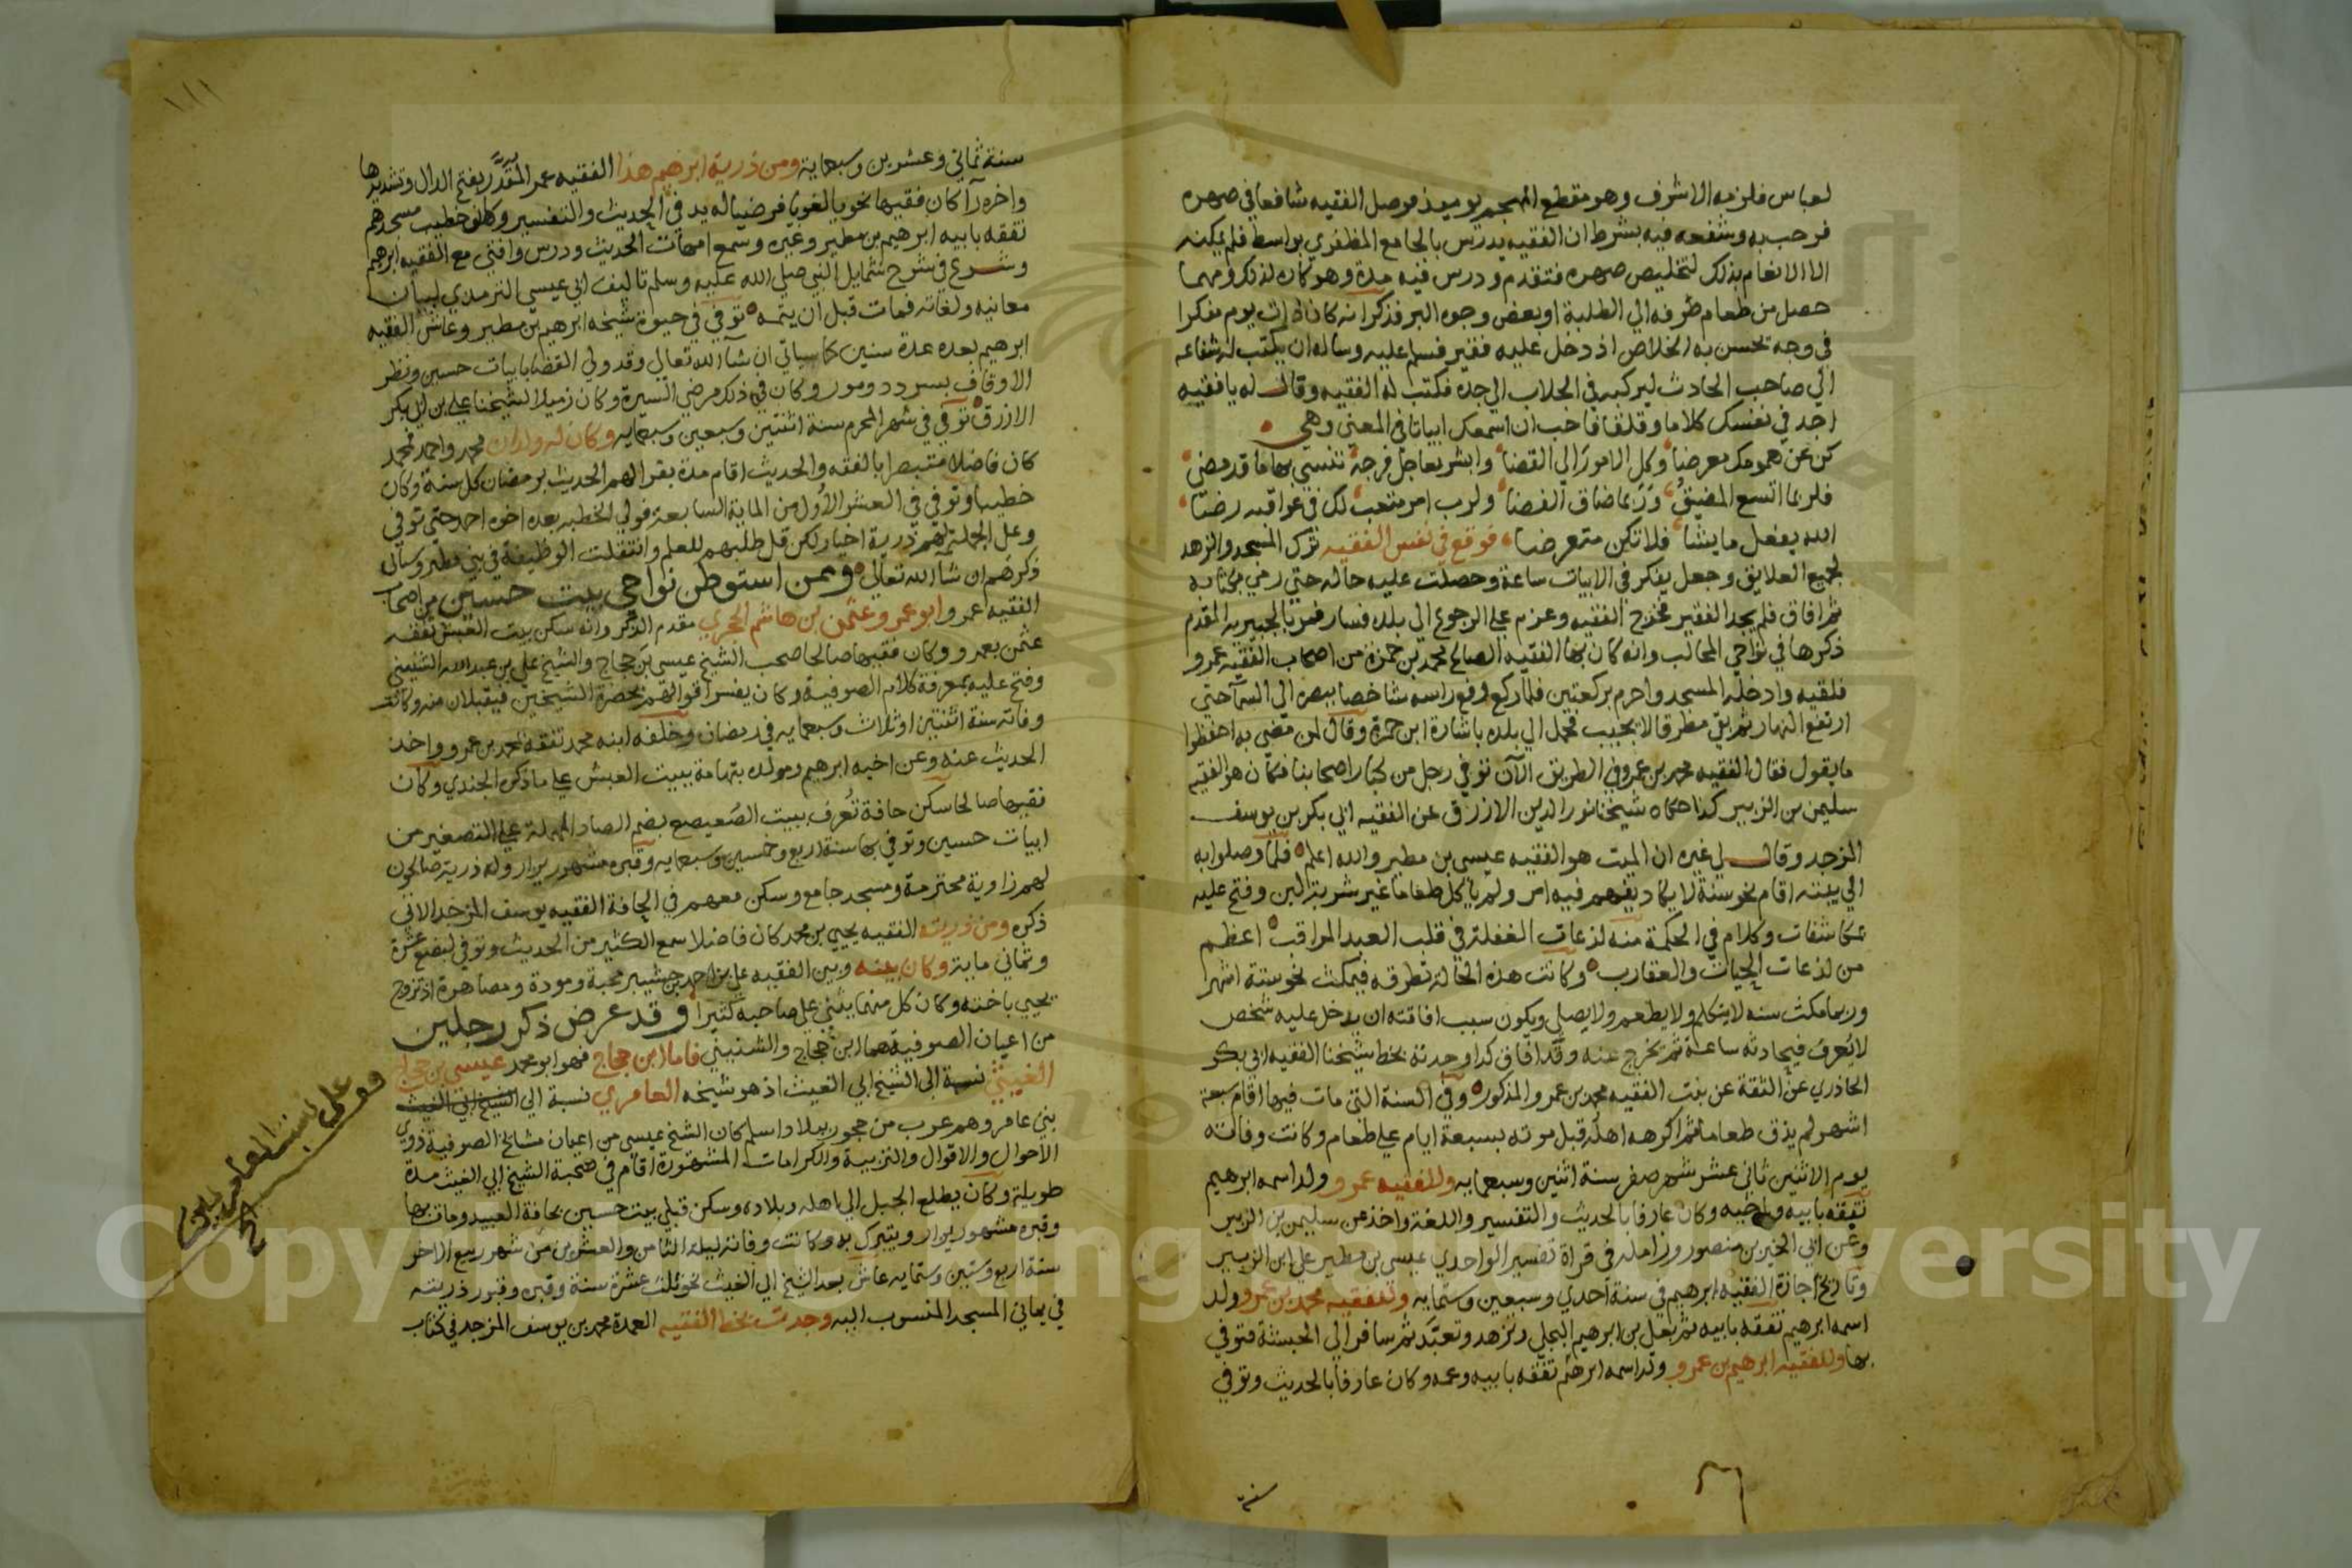 لعباس فلزمه الاشرف وهو مقطع المهجم يوميذ فوصل الفقيه شافعا في صهره
فرحب به وشفعه فيه بشرط ان الفقيه يدرس بالجامع المظفري بواسط فلم يمكنه
الا الانعام بذلك لتخليص صهره فتقدم ودرس فيه مدة وهو كاره لذلك ومهما
حصل من طعام صرفه الي الطلبة او بعض وجوه البر فذكر انه كان ذات يوم مفكرا
في وجه يحسن به الخلاص اذ دخل عليه فقير فسلم عليه وساله ان يكتب له شفاعه
الي صاحب الحادث ليركبه في الجلاب الي جده فكتب له الفقيه وقال له يا فقيه
اجد في نفسك كلاما وقلقا فاحب ان اسمعك ابياتا في المعني وهي
كن عن همومك معرضا وكل الامور الي القضا وابشر بعاجل فرجة تنسي بها ما قد مضي
فلربما اتسع المضيق وربما ضاق الفضا ولرب امر متعب لك في عواقبه رضا
الله يفعل ما يشا فلا تكن متعرضا فوقع في نفس الفقيه ترك المسجد والزهد
لجميع العلايق وجعل يفكر في الابيات ساعة وحصلت عليه حاله حتي رمي بكتابه
ثم افاق فلم يجد الفقير فخرج الفقيه وعزم علي الرجوع الي بلده فسار فمر بالجبيريه المقدم
ذكرها في نواحي المحالب وانه كان بها الفقيه الصالح محمد بن حمزة من اصحاب الفقيه عمرو
فلقيه وادخله المسجد واحرم بركعتين فلما ركع رفع راسه شاخصا ببصره الي السما حتي
ارتفع النهار ثم بقي مطرقا لا يجيب فحمل الي بلده باشارة ابن حمزة وقال لمن مضي به احفظوا
ما يقول فقال الفقيه محمد بن عمرو في الطريق الآن توفي رجل من كبار اصحابنا فكان هو الفقيه
سليمن بن الزبير كذا حكاه شيخنا نور الدين الازرق عن الفقيه ابي بكر بن يوسف
المزجد وقال لي غيره ان الميت هو الفقيه عيسي بن مطير والله اعلم فلما وصلوا به
الي بيته اقام نحو سنة لا يكاد يفهم فيه امر ولم ياكل طعاما غير شربة البن وفتح عليه
بمكاشفات وكلام في الحكمة منه لذعات الغفلة في قلب العبد المراقب اعظم
من لذعات الحيات والعقارب وكانت هذه الحالة تطرقه فيمكث نحو ستة اشهر
وربما مكث سنه لا يتكلم ولا يطعم ولا يصلي ويكون سبب افاقته ان يدخل عليه شخص
لا يعرف فيحادثه ساعة ثم يخرج عنه وقد افاق كذا وجدته بخط شيخنا الفقيه ابي بكر
الحاذري عن الثقة عن بنت الفقيه محمد بن عمرو المذكور وفي السنة التي مات فيها اقام سبعة
اشهر لم يذق طعاما ثم اكرهه اهله قبل موته بسبعة ايام علي طعام وكانت وفاته
يوم الاثنين ثاني عشر شهر صفر سنة اثنين وسبعمايه وللفقيه عمرو ولد اسمه ابرهيم
تفقه بابيه واخيه وكان عارفا بالحديث والتفسير واللغة واخذ عن سليمن بن الزبير
وعن ابي الخير بن منصور وزامله في قراة تفسير الواحدي عيسي بن مطير علي ابن الزبير
وتاريخ اجازة الفقيه ابرهيم في سنة احدي وسبعين وستمايه وللفقيه محمد بن عمرو ولد
اسمه ابرهيم تفقه بابيه ثم بعلي بن ابرهيم البجلي وتزهد وتعبد ثم سافر الي الحبشة فتوفي
بها وللفقيه ابرهيم بن عمرو ولد اسمه ابرهيم تفقه بابيه وعمه وكان عارفا بالحديث وتوفي
سنة
١١١
سنة ثماني وعشرين وسبعماية ومن ذرية ابرهيم هذا الفقيه عمر المقدر بفتح الدال وتشديدها
واخره رآ كان فقيها نحويا لغويا فرضيا له يد في الحديث والتفسير وكان خطيب مسجدهم
تفقه بابيه ابرهيم بن مطير وغيره وسمع امهات الحديث ودرس وافتي مع الفقيه ابرهيم
وشرع في شرح شمايل النبي صلي الله عليه وسلم تاليف ابي عيسي الترمذي لبيان
معانيه ولغاته فمات قبل ان يتمه توفي في حيوة شيخه ابرهيم بن مطير وعاش الفقيه
ابرهيم بعده عدة سنين كما سياتي ان شآ الله تعالي وقد ولي القضا بابيات حسين ونظر
الاوقاف بسردد ومور وكان في ذلك مرضي السيرة وكان زميلا لشيخنا علي بن ابي بكر
الازرق توفي في شهر المحرم سنة اثنتين وسبعين وسبعمايه وكان له ولدان محمد واحمد فمحمد
كان فاضلا متبصرا بالفقه والحديث اقام مدة يقرا لهم الحديث برمضان كل سنة وكان
خطيبا وتوفي في العشر الاول من الماية السابعة فولي الخطبه بعده اخوه احمد حتي توفي
وعلي الجملة فهم ذرية اخيار لكن قل طلبهم للعلم وانتقلت الوظيفة في بني مطير وسياتي
ذكرهم ان شآ الله تعالي وممن استوطن نواحي بيت حسين من اصحاب
الفقيه عمرو ابو عمرو عثمن بن هاشم الحجري مقدم الذكر وانه سكن بيت العبش تفقه
عثمن بعمرو وكان فقيها صالحا صحب الشيخ عيسي بن حجاج والشيخ علي بن عبدالله الشنيني
وفتح عليه بمعرفة كلام الصوفية وكان يفسر اقوالهم بحضرة الشيخين فيقبلان منه وكانت
وفاته سنة اثنتين او ثلاث وسبعمايه في رمضان وخلفه ابنه محمد تفقه بمحمد بن عمرو واخذ
الحديث عنه وعن اخيه ابرهيم ومولده بتهامة ببيت العبش علي ما ذكره الجندي وكان
فقيها صالحا سكن حافة تعرف ببيت الصعيصع بضم الصاد المهملة علي التصغير من
ابيات حسين وتوفي بها سنة اربع وخمسين وسبعمايه وقبره مشهور يزار وله ذرية صالحون
لهم زاوية محترمة ومسجد جامع وسكن معهم في الحافة الفقيه يوسف المزجد الاتي
ذكره ومن ذريته الفقيه يحيي بن محمد كان فاضلا سمع الكثير من الحديث وتوفي لبضع عشرة
وثماني ماية وكان بينه وبين الفقيه علي بن احمد بن حشيبر محبة ومودة ومصاهرة اذ تزوج
يحيي باخته وكان كل منهما يثني علي صاحبه كثيرا وقد عرض ذكر رجلين
من اعيان الصوفية هما ابن حجاج والشنيني فاما ابن حجاج فهو ابو محمد عيسي بن حجاج
الغيثي نسبة الي الشيخ ابي الغيث اذ هو شيخه العامري نسبة الي الشيخ ابي الغيث
بني عامر وهم عرب من حجور ببلاد اسلم كان الشيخ عيسي من اعيان مشايخ الصوفية ذوي
الاحوال والاقوال والتربية والكرامات المشهورة اقام في صحبة الشيخ ابي الغيث مدة
طويلة وكان يطلع الجبل الي اهله وبلاده وسكن قبلي بيت حسين بحافة العبيد ومات بها
وقبره مشهور يزار ويتبرك به وكانت وفاته ليلة الثامن والعشرين من شهر ربيع الاخر
سنة اربع وستين وستمايه عاش بعد الشيخ ابي الغيث نحو ثلث عشرة سنة وقبره وقبور ذريته
في يماني المسجد المنسوب اليه وجدت بخط الفقيه العمدة محمد بن يوسف المزجد في كتاب
Copyright © King Saud University